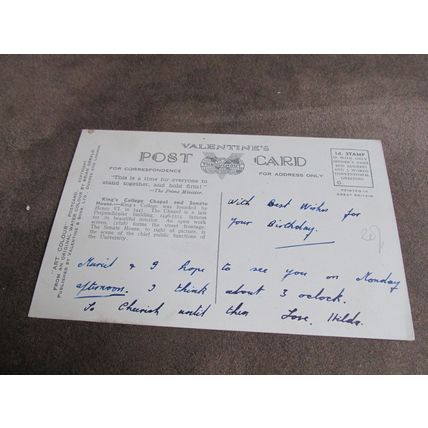 VALENTINE'S
POST CARD
FOR CORRESPONDENCE
FOR ADDRESS ONLY
"This is a time for everyone to
stand together, and hold firm!"
—The Prime Minister.
King's College Chapel and Senate
House.—King's College was founded by
Henry VI. in 1441. The Chapel is a late
Perpendicular building,
famous
for its beautiful interior. An open work
screen, (1828) forms the street frontage.
The Senate House, to right of picture, is
the scene of the chief public functions of
the University.
1d. STAMP
PRINTED IN
GREAT BRITAIN
"ART COLOUR" POSTCARD
FROM AN ORIGINAL WATER-COLOUR BY
PUBLISHED BY VALENTINE & SONS, LTD. DUNDEE AND LONDON
With Best Wishes for
Your Birthday.
Muriel & I hope to see you on Monday
afternoon. I think about 3 oclock.
So Cheerish until then Love, Hilda.